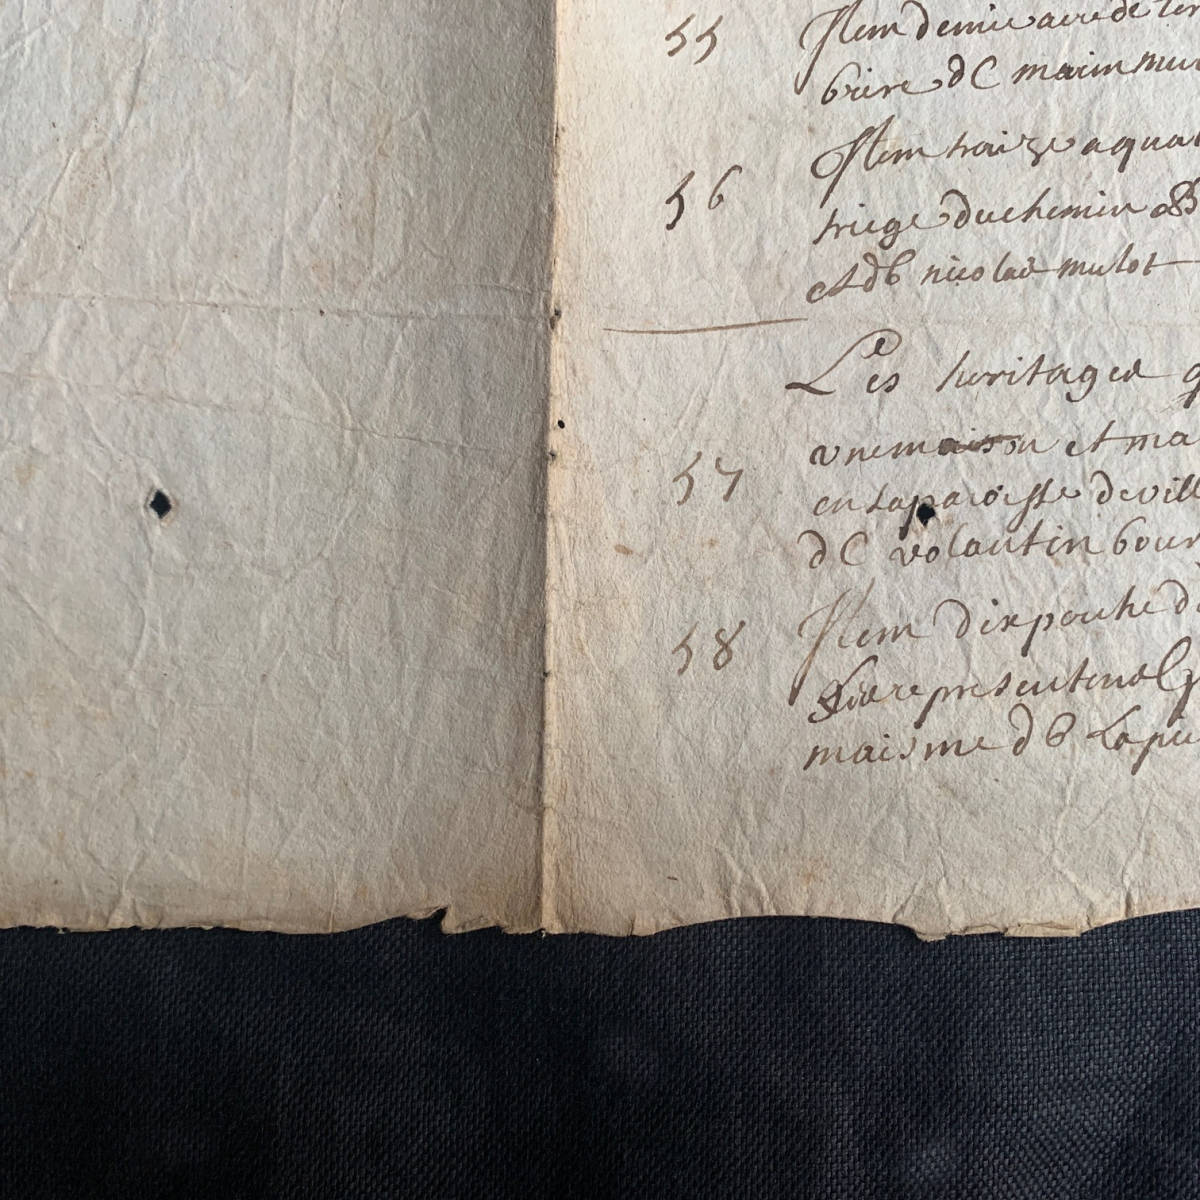 55 Item demie acre de ter
brire dC marin mu
56 Item traize a quat
triege du chemin
et db nicolas mulot
Les heritages q
57 vne maison et ma
en La paroisse de vill
dC volantin bour
58 Item dix perche d
representent
maisme db La pi